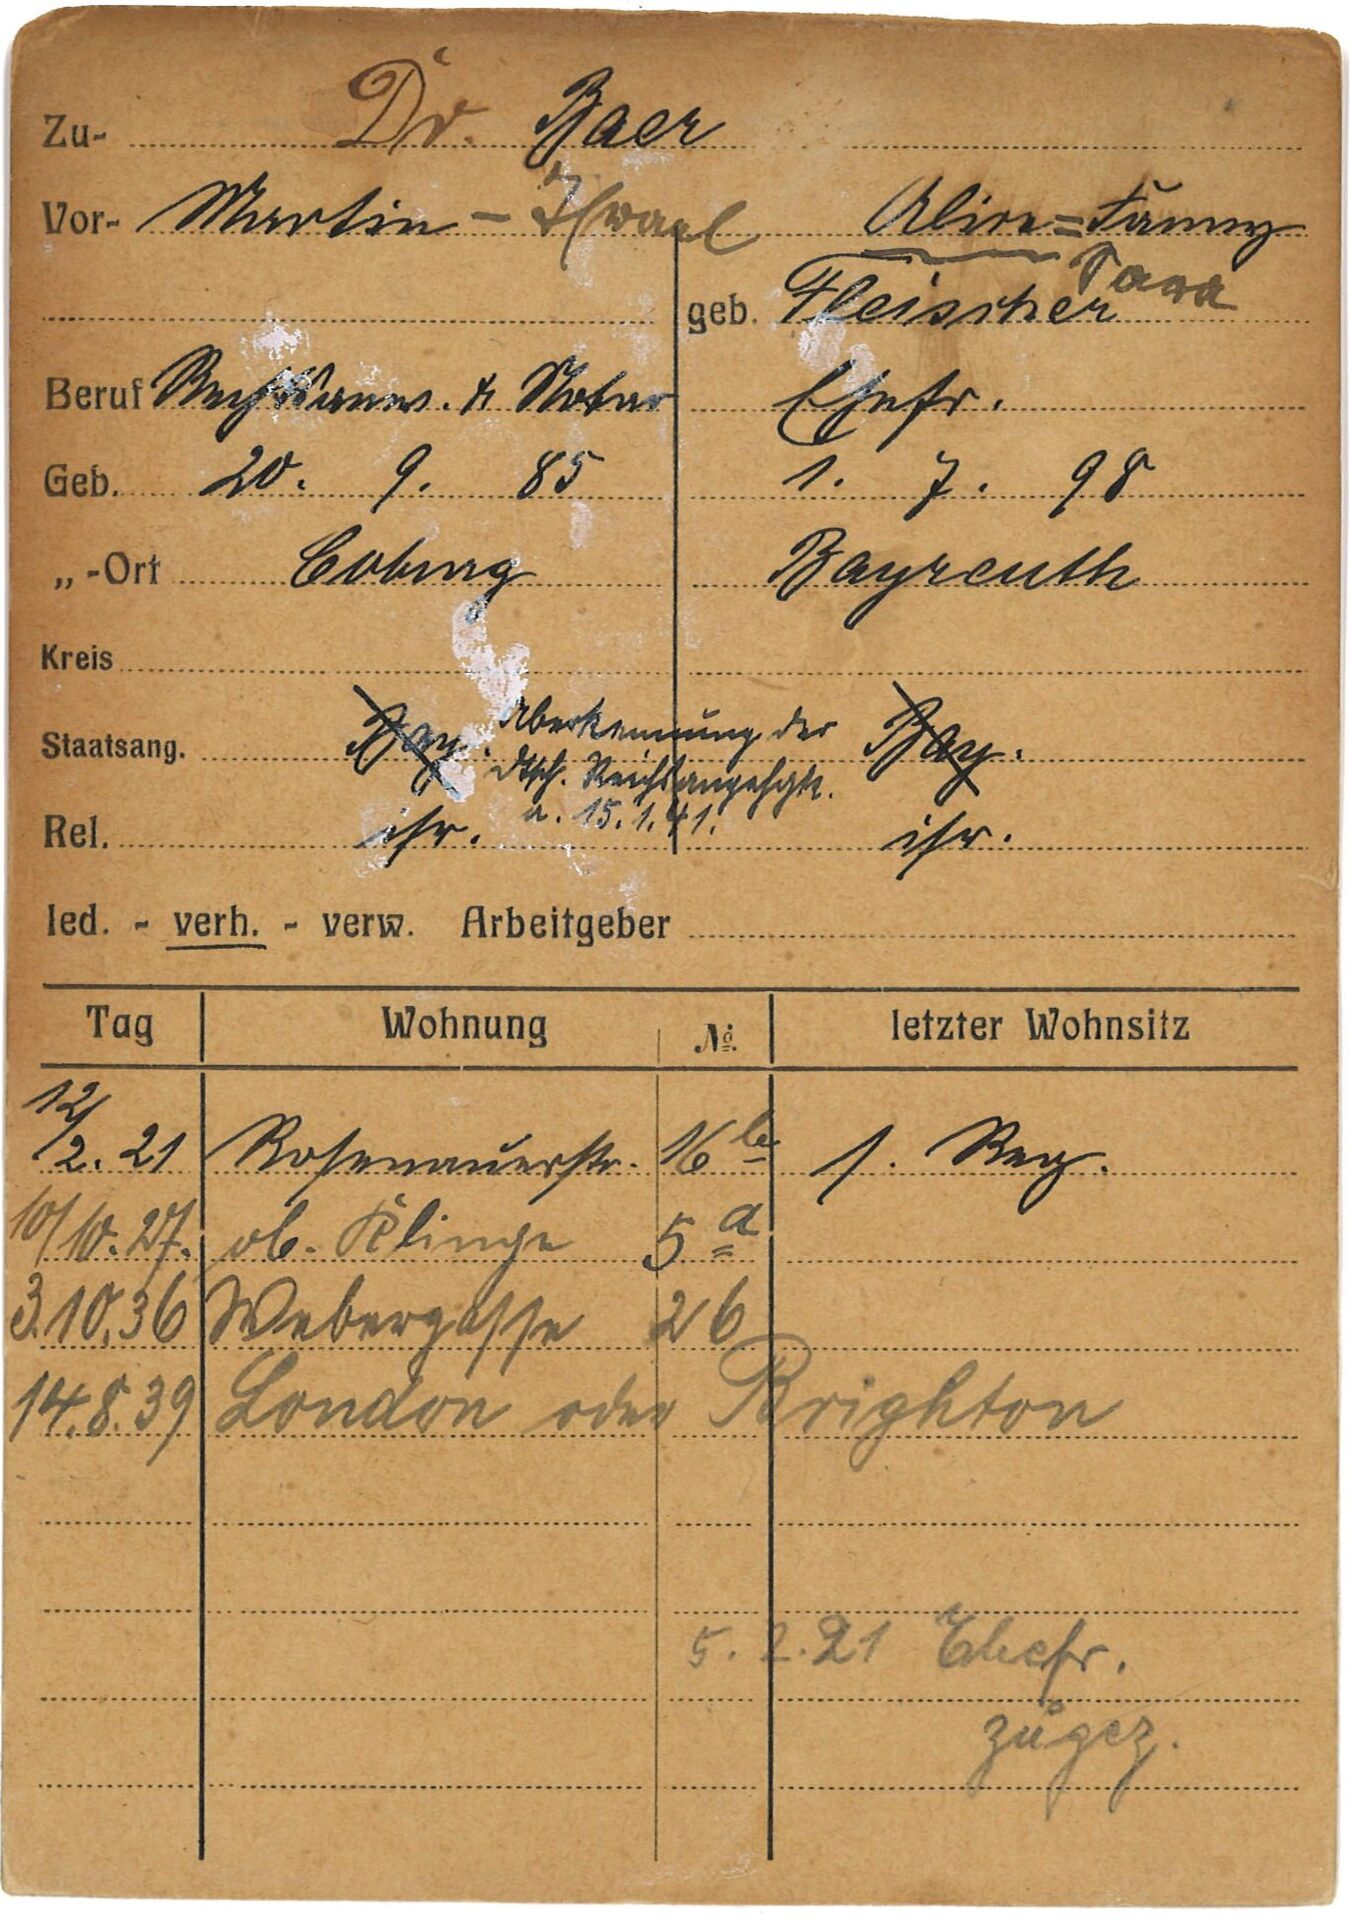 Zu- Dr. Baer
Vor- Martin - Israel Alice = Fanny
Sara
geb. Fleischer
Beruf Rechtsanw. & Notar Ehefr.
Geb. 20. 9. 85 1. 7. 98
„-Ort Coburg Bayreuth
Kreis
Staatsang. Bay. Aberkennung der Bay.
dtsch. Reichsangehgk.
Rel. isr. a. 15.1.41. isr.
led. - verh. - verw. Arbeitgeber
Tag Wohnung № letzter Wohnsitz
12/2. 21 Rosenauerstr. 16 b 1. Reg.
10/10. 27. ob. Klinge 5 a
3.10.36 Webergasse 26
14.8.39 London oder Brighton
5. 2. 21 Ehefr.
zugez.